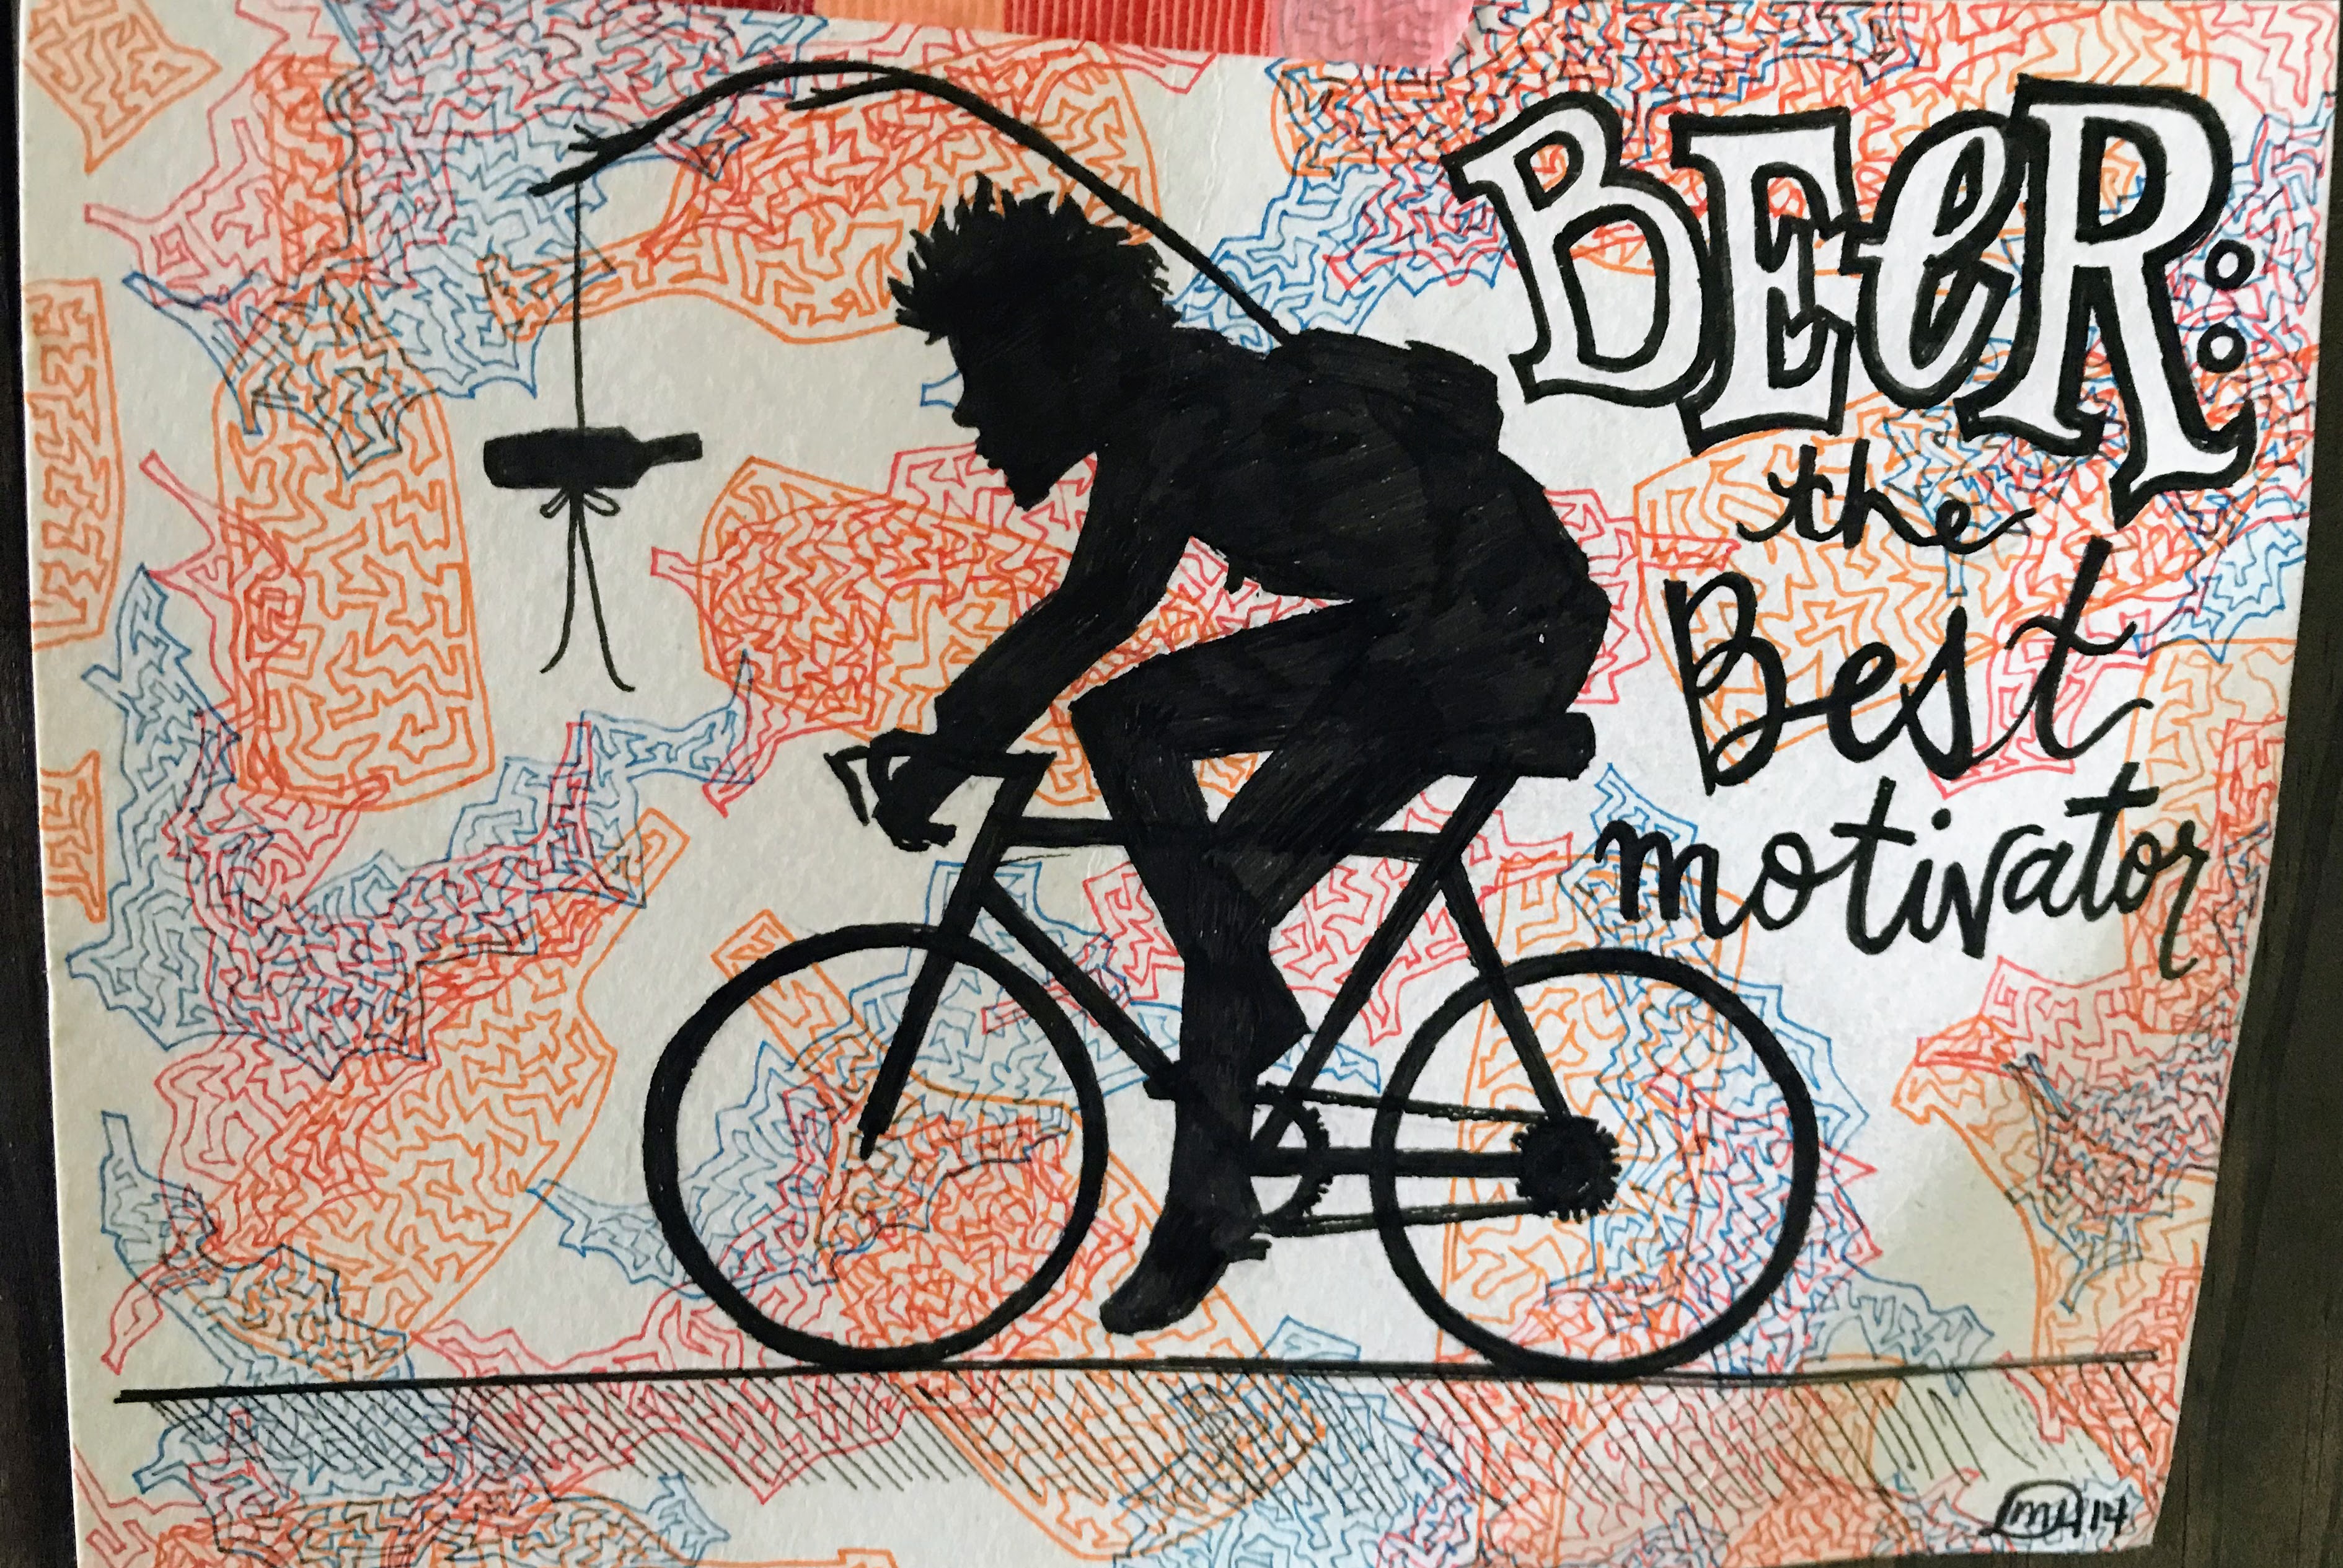 BEeR:
the
Best
motivator